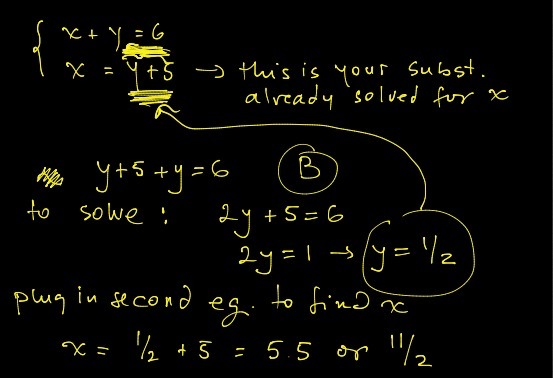 x + y = 6
x = y+5 → this is your subst.
already solved for x
y+5+y=6 B
to solve: 2y+5=6
2y=1 → y=1/2
plug in second eq. to find x
x = 1/2 + 5 = 5.5 or 11/2